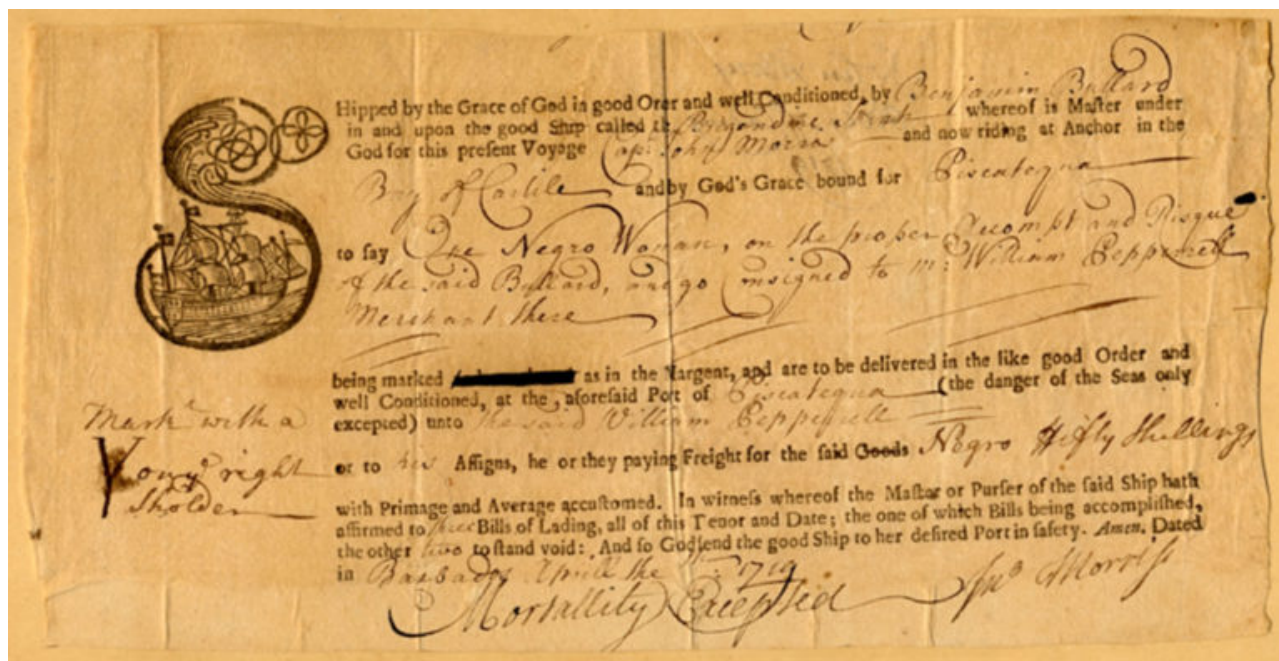 SHipped by the Grace of God in good Order and well Conditioned, by Benjamin Bullard
in and upon the good Ship called the Brigandine Sarah whereof is Master under
God for this present Voyage Cap: John Morris and now riding at Anchor in the
Bay of Carlile and by God's Grace bound for Piscatequa
to say One Negro Woman, on the proper Accompt and Risque
of the said Bullard, and go Consigned to mr. William Pepperrell
Merchant there
being marked as in the Margent, and are to be delivered in the like good Order and
well Conditioned, at the aforesaid Port of Piscatequa (the danger of the Seas only
excepted) unto the said William Pepperrell
Mark'd with a
Y on ye right
Sholder
or to his Assigns, he or they paying Freight for the said Goods Negro Fifty Shillings
with Primage and Average accustomed. In witness whereof the Master or Purser of the said Ship hath
affirmed to three Bills of Lading, all of this Tenor and Date; the one of which Bills being accomplished,
the other two to stand void: And so God send the good Ship to her desired Port in safety. Amen. Dated
in Barbados Aprill the 1719
Mortallity Excepted Jno Morris